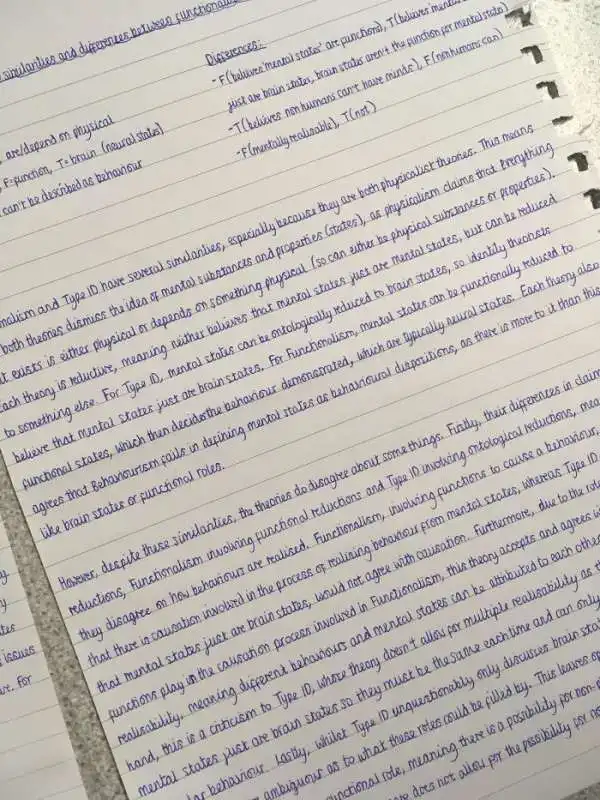 similarities and differences between functionalis
Differences:
- F (believes 'mental states' are functions), T (believes 'mental
just are brain states, brain states aren't the function for mental state)
- T (believes non humans can't have minds), F (nonhumans can)
- F (mentally realisable), T (not)
are/depend on physical
F=function, T= brain (neural states)
can't be described as behaviour
nalism and Type ID have several similarities, especially because they are both physicalist theories. This means
both theories dismiss the idea of mental substances and properties (states), as physicalism claims that everything
t exists is either physical or depends on something physical (so can either be physical substances or properties).
Each theory is reductive, meaning neither believes that mental states just are mental states, but can be reduced
to something else. For Type ID, mental states can be ontologically reduced to brain states, so identity theorists
believe that mental states just are brain states. For Functionalism, mental states can be functionally reduced to
functional states, which then decides the behaviour demonstrated, which are typically neural states. Each theory also
agrees that Behaviourism fails in defining mental states as behavioural dispositions, as there is more to it than this
like brain states or functional roles.
However, despite these similarities, the theories do disagree about some things. Firstly, their differences in claim
reductions, Functionalism involving functional reductions and Type ID involving ontological reductions, mea
they disagree on how behaviours are realised. Functionalism, involving functions to cause a behaviour,
that there is causation involved in the process of realising behaviour from mental states, whereas Type ID
that mental states just are brain states, would not agree with causation. Furthermore, due to the role
functions play in the causation process involved in Functionalism, this theory accepts and agrees w
realisability, meaning different behaviours and mental states can be attributed to each other
hand, this is a criticism to Type ID, whose theory doesn't allow for multiple realisability as t
mental states just are brain states so they must be the same each time and can only
lar behaviour. Lastly, whilst Type ID unquestionably only discusses brain stat
ambiguous as to what these roles could be filled by. This leaves op
unctional role, meaning there is a possibility for non-p
te does not allow for the possibility for no
issues
ve. For